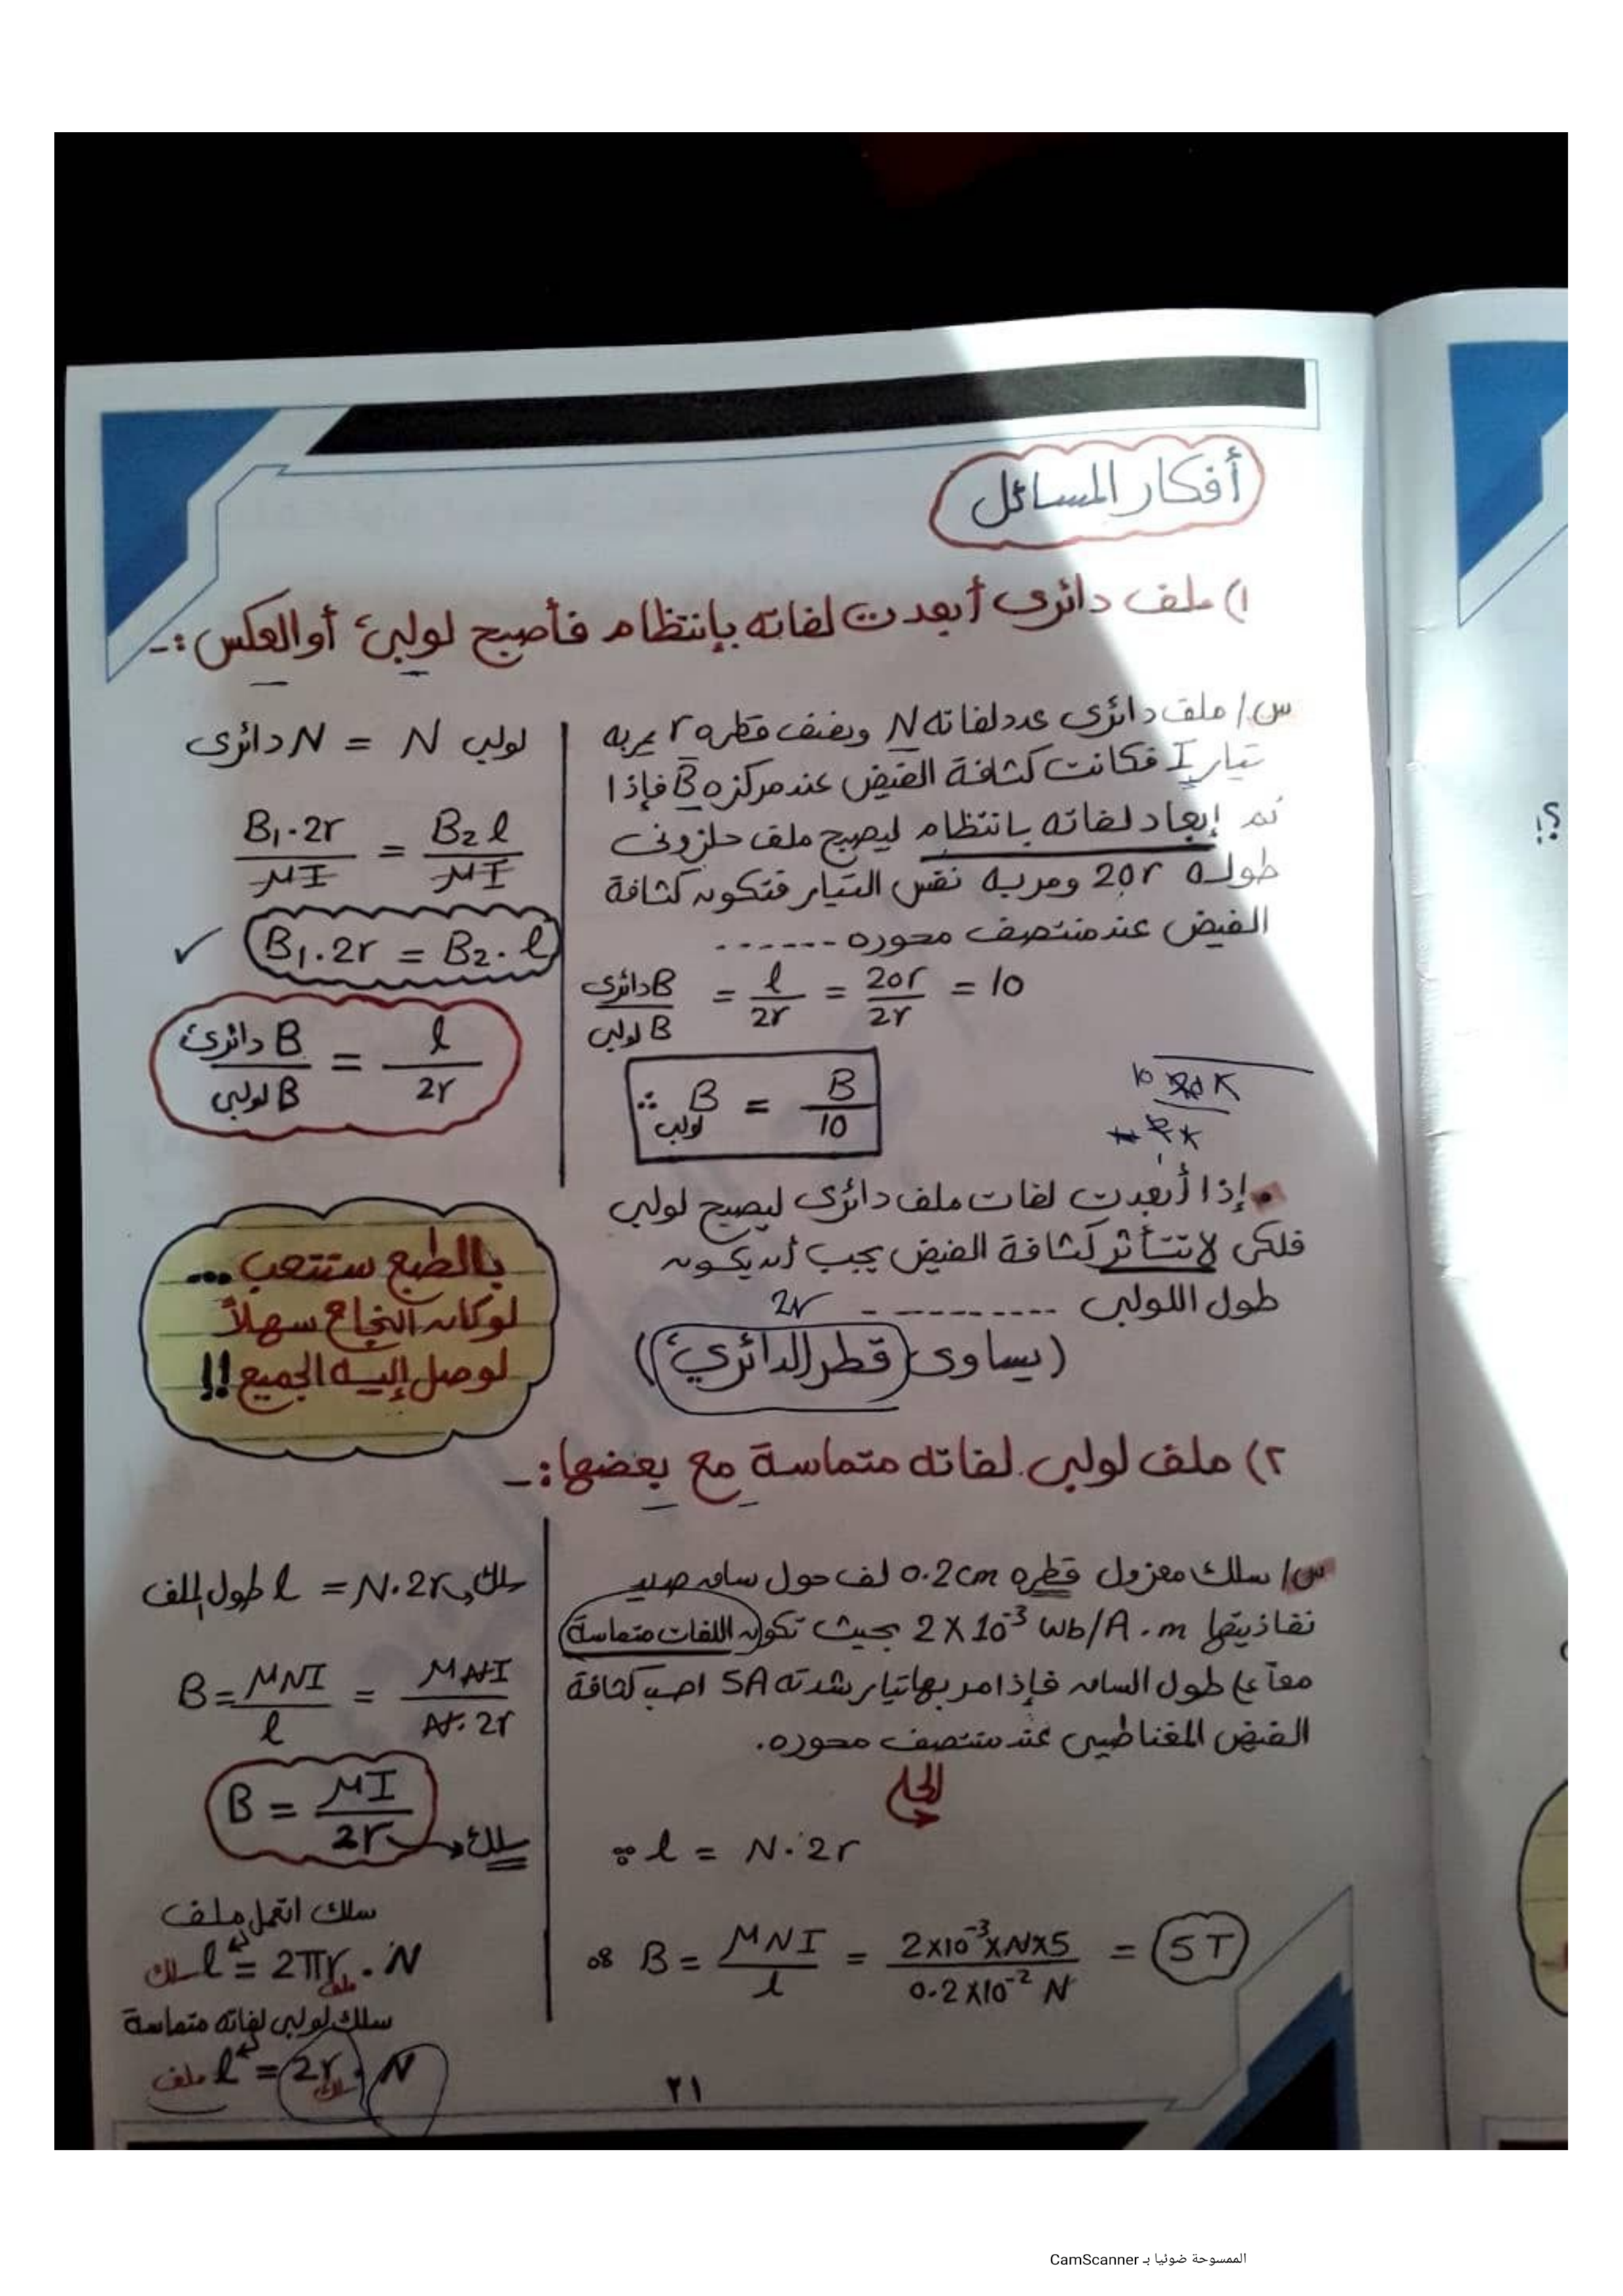 أفكار المسائل
١) ملف دائرى أبعدت لفاته بإنتظام فأصبح لولبى أو العكس :-
س/ ملف دائرى عدد لفاته N ونصف قطره r يمر به
تيار I فكانت كثافة الفيض عند مركزه B فإذا
تم إبعاد لفاته بانتظام ليصبح ملف حلزونى
طوله 20r ومر به نفس التيار فتكون كثافة
الفيض عند منتصف محوره -------
B دائرى / B لولبى = l / 2r = 20r / 2r = 10
∴ B لولبى = B / 10
N دائرى = N لولبى
B₁.2r / μI = B₂ l / μI
B₁.2r = B₂.l ✓
B دائرى / B لولبى = l / 2r
• إذا أبعدت لفات ملف دائرى ليصبح لولبى
فلكى لا تتأثر كثافة الفيض يجب أن يكون
طول اللولبى ---------- 2r
(يساوى قطر الدائرى)
بالطبع ستتعب ...
لو كان النجاح سهلاً
لوصل إليه الجميع !!
٢) ملف لولبى لفاته متماسة مع بعضها :-
س/ سلك معزول قطره 0.2cm لف حول ساق حديد
نفاذيتها 2 X 10⁻³ wb/A.m بحيث تكون اللفات متماسة
معاً على طول الساق فإذا مر بها تيار شدته 5A احسب كثافة
الفيض المغناطيسى عند منتصف محوره.
الحل
∵ l = N.2r
∴ B = μNI / l = 2x10⁻³xNx5 / 0.2x10⁻² N = 5T
طول الملف l = N.2r سلك
B = μNI / l = μNI / N.2r
B = μI / 2r سلك
سلك اتعمل ملف
سلك l = 2πr ملف . N
سلك لولبى لفاته متماسة
ملف l = 2r سلك . N
٢١
الممسوحة ضوئيا بـ CamScanner